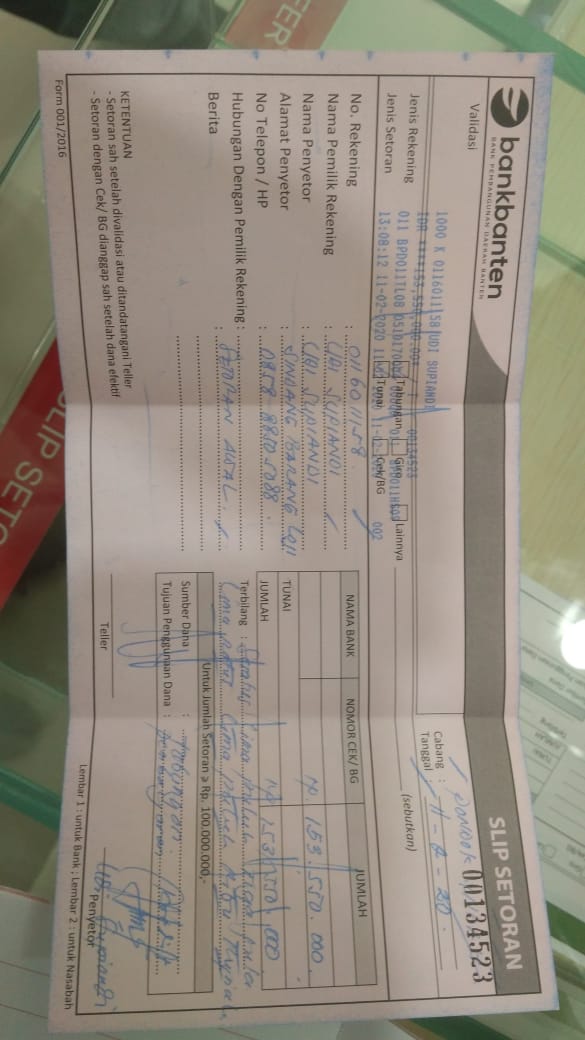 bankbanten
BANK PEMBANGUNAN DAERAH BANTEN
SLIP SETORAN
00134523
Validasi
1000 K 0116011158 UDI SUPIANDI
IDR ****153,550,000.00
00134523
011 BPD011TL08
13:08:12 11-02-2020
002
Cabang : Pondok
Tanggal : 11-2-20
Jenis Rekening : Tabungan Giro Lainnya (sebutkan)
Jenis Setoran : Tunai Cek/BG
No. Rekening :
Nama Pemilik Rekening : UDI SUPIANDI
Nama Penyetor : UDI SUPIANDI
Alamat Penyetor : SINDANG BARANG
No Telepon / HP :
Hubungan Dengan Pemilik Rekening :
Berita : SETORAN AWAL
NAMA BANK NOMOR CEK/ BG JUMLAH
Rp. 153.550.000
TUNAI
JUMLAH Rp 153.550.000
Terbilang : Seratus lima puluh tiga juta
lima ratus lima puluh ribu rupiah
Untuk Jumlah Setoran ≥ Rp. 100.000.000,-
Sumber Dana : Tabungan
Tujuan Penggunaan Dana :
KETENTUAN
- Setoran sah setelah divalidasi atau ditandatangani Teller
- Setoran dengan Cek/ BG dianggap sah setelah dana efektif
Teller
Udi Supiandi
Penyetor
Form 001/2016
Lembar 1 : untuk Bank ; Lembar 2 : untuk Nasabah
SLIP SETO